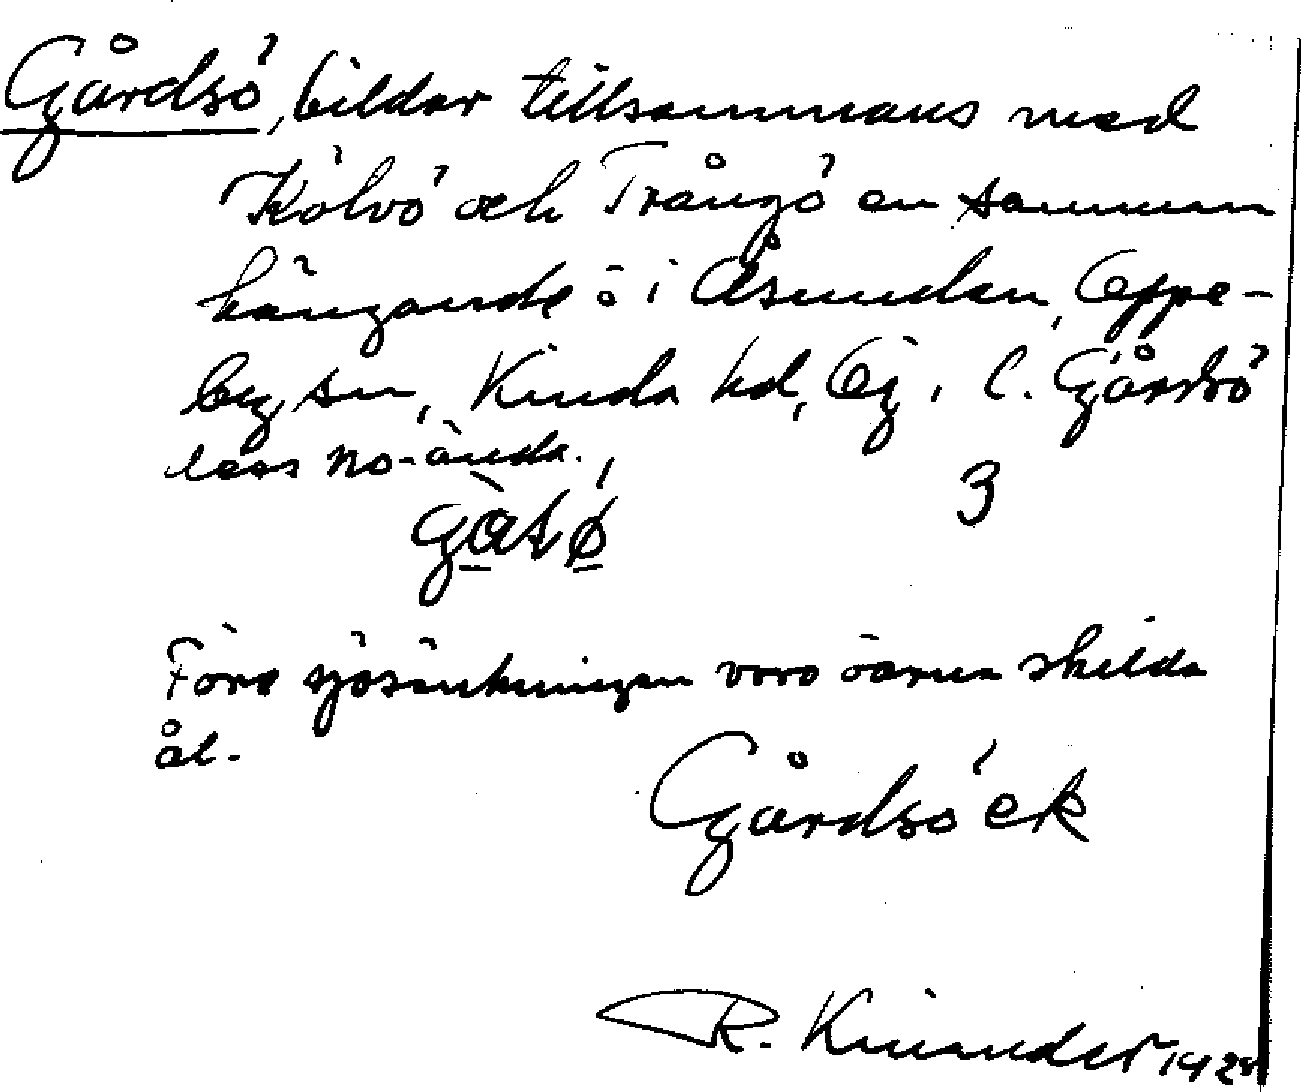 Gårdsö, bildar tillsammans med
Kölvö och Trångö en samman
hängande ö i Åsunden, Oppe-
by sn, Kinda hd, Ög. l. Gårdsö
dess no-ända.
3
Före sjösänkningen voro öarna skilda
åt.
Gårdsö ek
R. Kinander 192